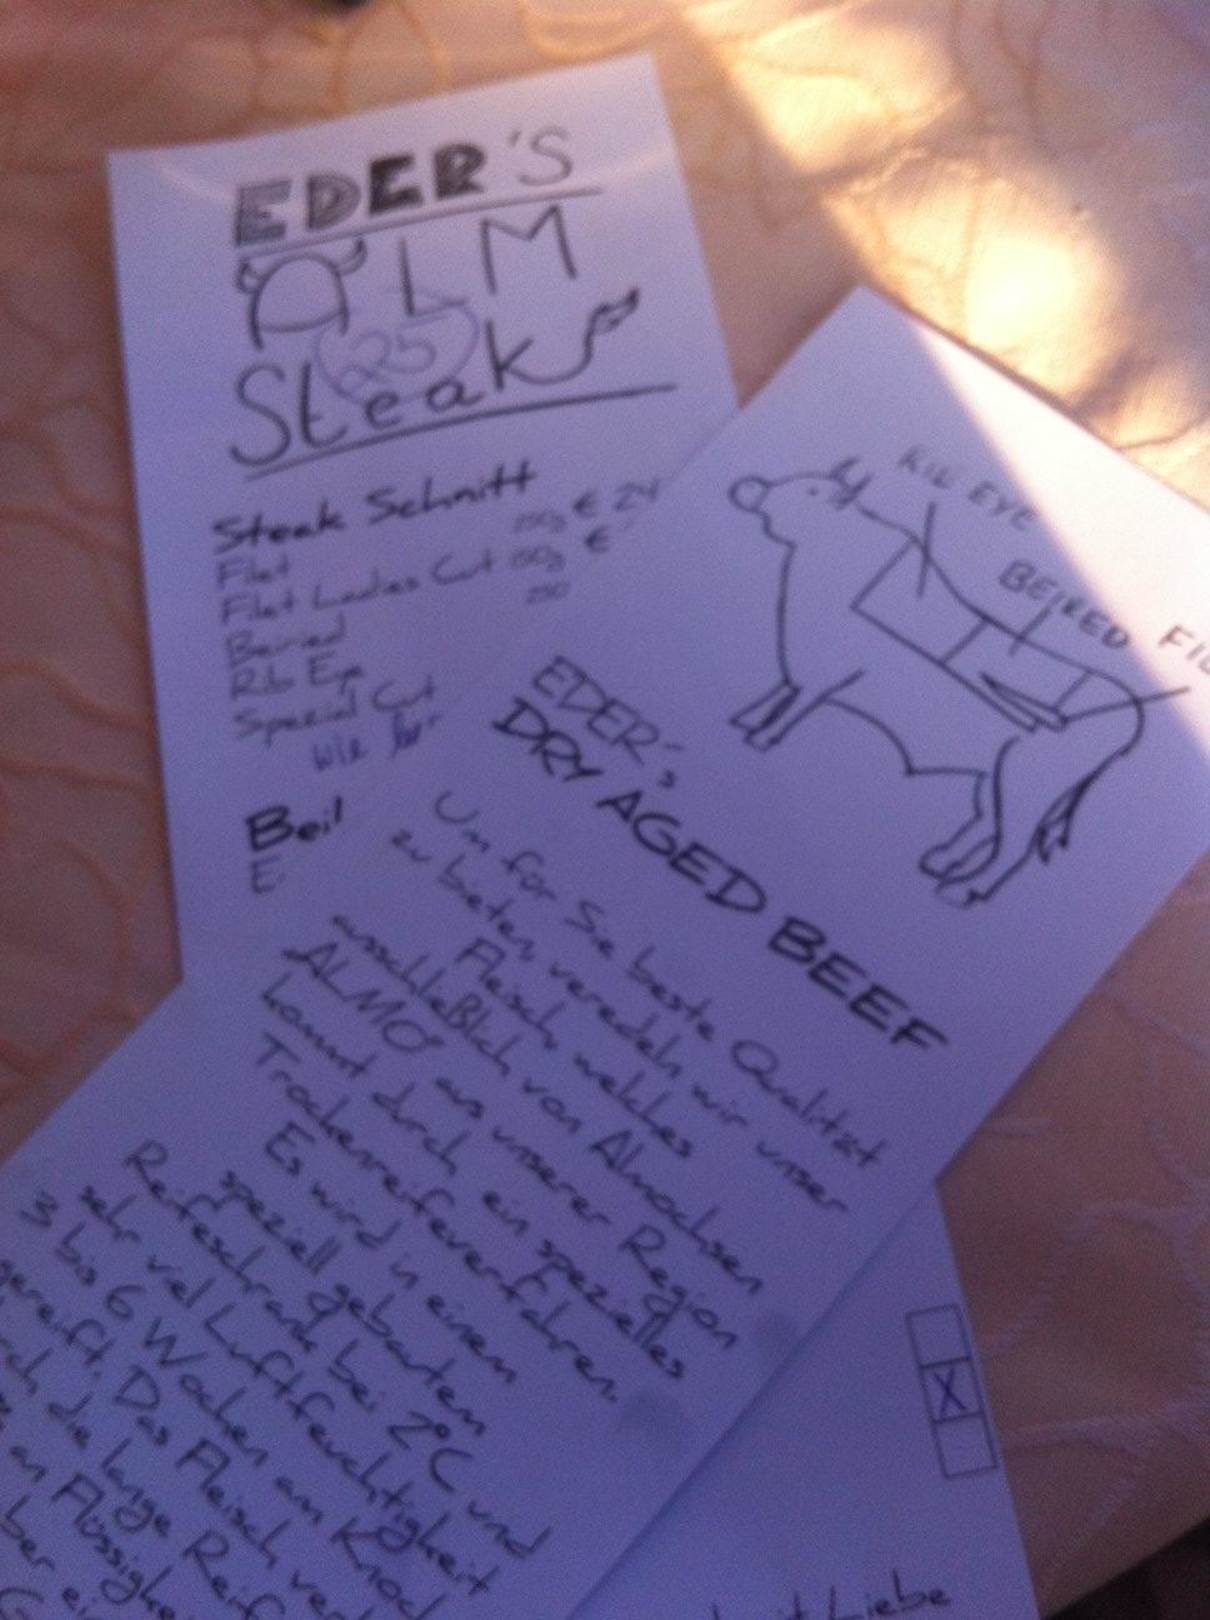 EDER'S
ALM
25
Steak
Steak Schnitt
Filet 250g € 24
Filet Ladies Cut 150g €
Beiried 250
Rib Eye
Spezial Cut
Wie
Beil
E
RIB EYE
BEIRED
EDER's
DRY AGED BEEF
Um für Sie beste Qualität
zu bieten, veredeln wir unser
Fleisch, welches
ausschließlich von Almochsen
ALMO aus unserer Region
kommt durch ein spezielles
Trockenreifeverfahren.
Es wird in einem
speziell gebauten
Reifeschrank bei 2°C und
sehr viel Luftfeuchtigkeit
3 bis 6 Wochen am Knoch
gereift. Das Fleisch ver
die lange Reif
an Flüssigke
ber ei
X
it Liebe